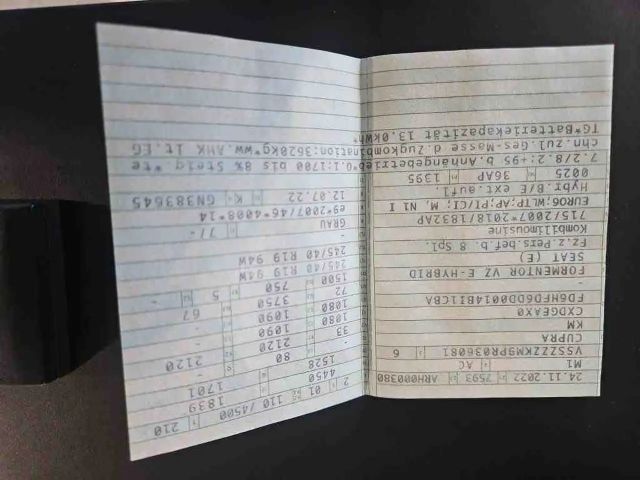 24.11.2022 7593 ARH000380
M1 AC
VSSZZZKM9PR036081 6
CUPRA
KM
CXDGEAX0
FORMENTOR VZ E-HYBRID
SEAT (E)
Fz.z.Pers.bef.b. 8 Spl.
Kombilimousine
715/2007*2018/1832AP
EURO6;WLTP;AP;PI/CI; M, N1 I
Hybr.B/E ext.aufl.
0025 36AP 1395
2 01 110 /4500 210
4450 1839
1528 1701
- 80
33 2120 2120
1080 1090 -
1080 1090 -
72 3750 67
1500 750 5 -
245/40 R19 94W
245/40 R19 94W
-
GRAU 7/-
e9*2007/46*4008*14
12.07.22 K GN383645
7.2/8.2:+95 b.Anhängebetrieb*O.1:1700 bis 8% Steig.*te
chn.zul.Ges-Masse d.Zugkombination:3620kg*ww.AHK lt.EG
TG*Batteriekapazität 13,0kWh*